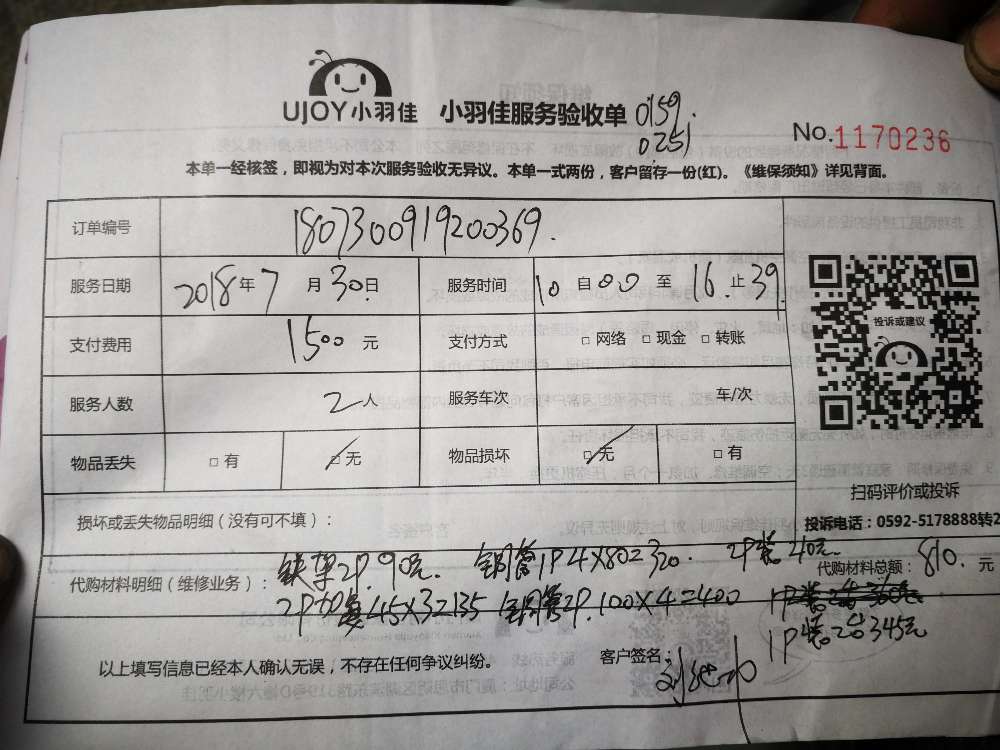 UJOY小羽佳 小羽佳服务验收单 0159.
0251
No.1170236
本单一经核签，即视为对本次服务验收无异议。本单一式两份，客户留存一份(红)。《维保须知》详见背面。
订单编号 1807300919200369.
服务日期 2018年7月30日 服务时间 10自00至16止39
支付费用 1500元 支付方式 □网络 □现金 □转账
服务人数 2人 服务车次 车/次
物品丢失 □有 □无 物品损坏 □无 □有
投诉或建议
扫码评价或投诉
投诉电话：0592-5178888转2
损坏或丢失物品明细（没有可不填）：
代购材料明细（维修业务）： 铁架2P.90元. 铜管1P4×80=320. 2P装40元.
代购材料总额： 810.元
2P加氟45×3=135 铜管2P.100×4=400
1P装2台345元
以上填写信息已经本人确认无误，不存在任何争议纠纷。 客户签名：